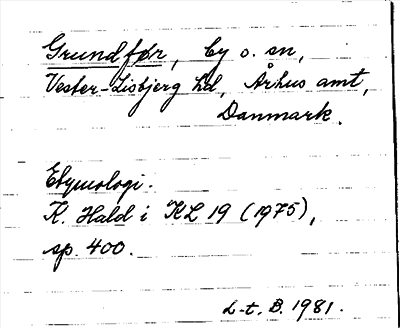 Grundfør, by o. sn,
Vester-Lisbjerg hd, Århus amt,
Danmark.
Etymologi.
K. Hald i KL 19 (1975),
sp. 400.
L-t. B. 1981.